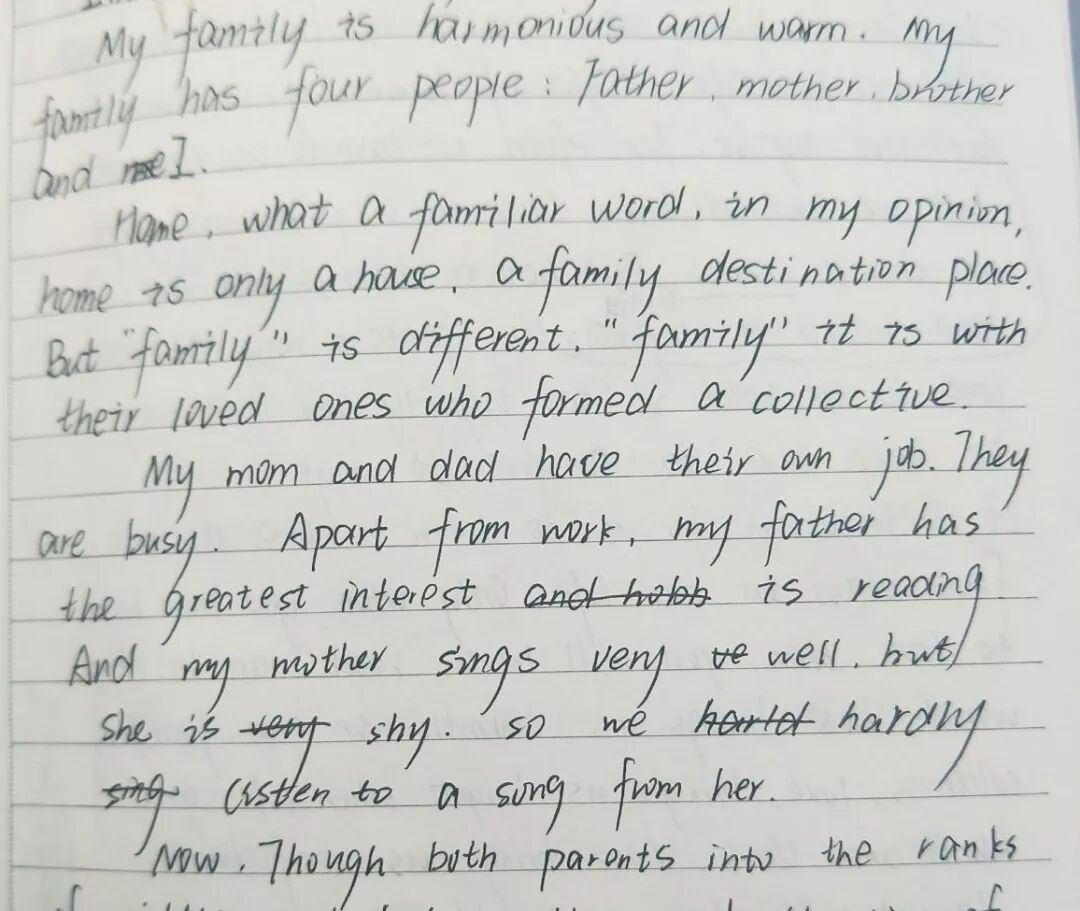 My family is harmonious and warm. My
family has four people: Father, mother, brother
and me I.
Home, what a familiar word, in my opinion,
home is only a house, a family destination place.
But "family" is different. "family" it is with
their loved ones who formed a collective.
My mom and dad have their own job. They
are busy. Apart from work, my father has
the greatest interest and hobb is reading
And my mother sings very ve well, but
she is very shy. so we hardly
sing listen to a song from her.
Now. Though both parents into the ranks